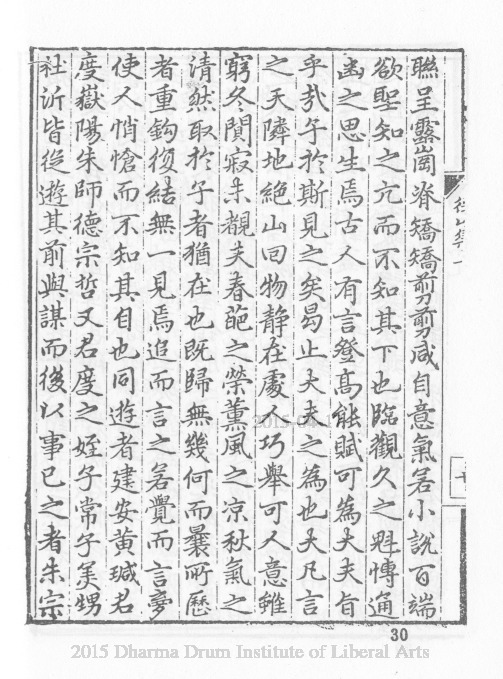 聯呈露岡脊矯矯剪剪咸自意氣若小說百端
欲聖知之亢而不知其下也臨觀久之魁愽通
幽之思生焉古人有言登髙能賦可為大夫旨
乎㢤予於斯見之矣曷止大夫之為也夫凡言
之天隣地絶山囬物静在處人巧舉可人意雖
窮冬閴寂未覩夫春葩之榮薰風之凉秋氣之
清然取於予者猶在也既歸無幾何而曩所歷
者重鈎復結無一見焉追而言之若覺而言旁
使人悄愴而不知其自也同遊者建安黄瑊君
度嶽陽朱師德宗哲又君度之姪子常子美甥
社沂皆從遊其前與謀而後以事已之者朱宗
徑山集一
十
30
2015 Dharma Drum Institute of Liberal Arts